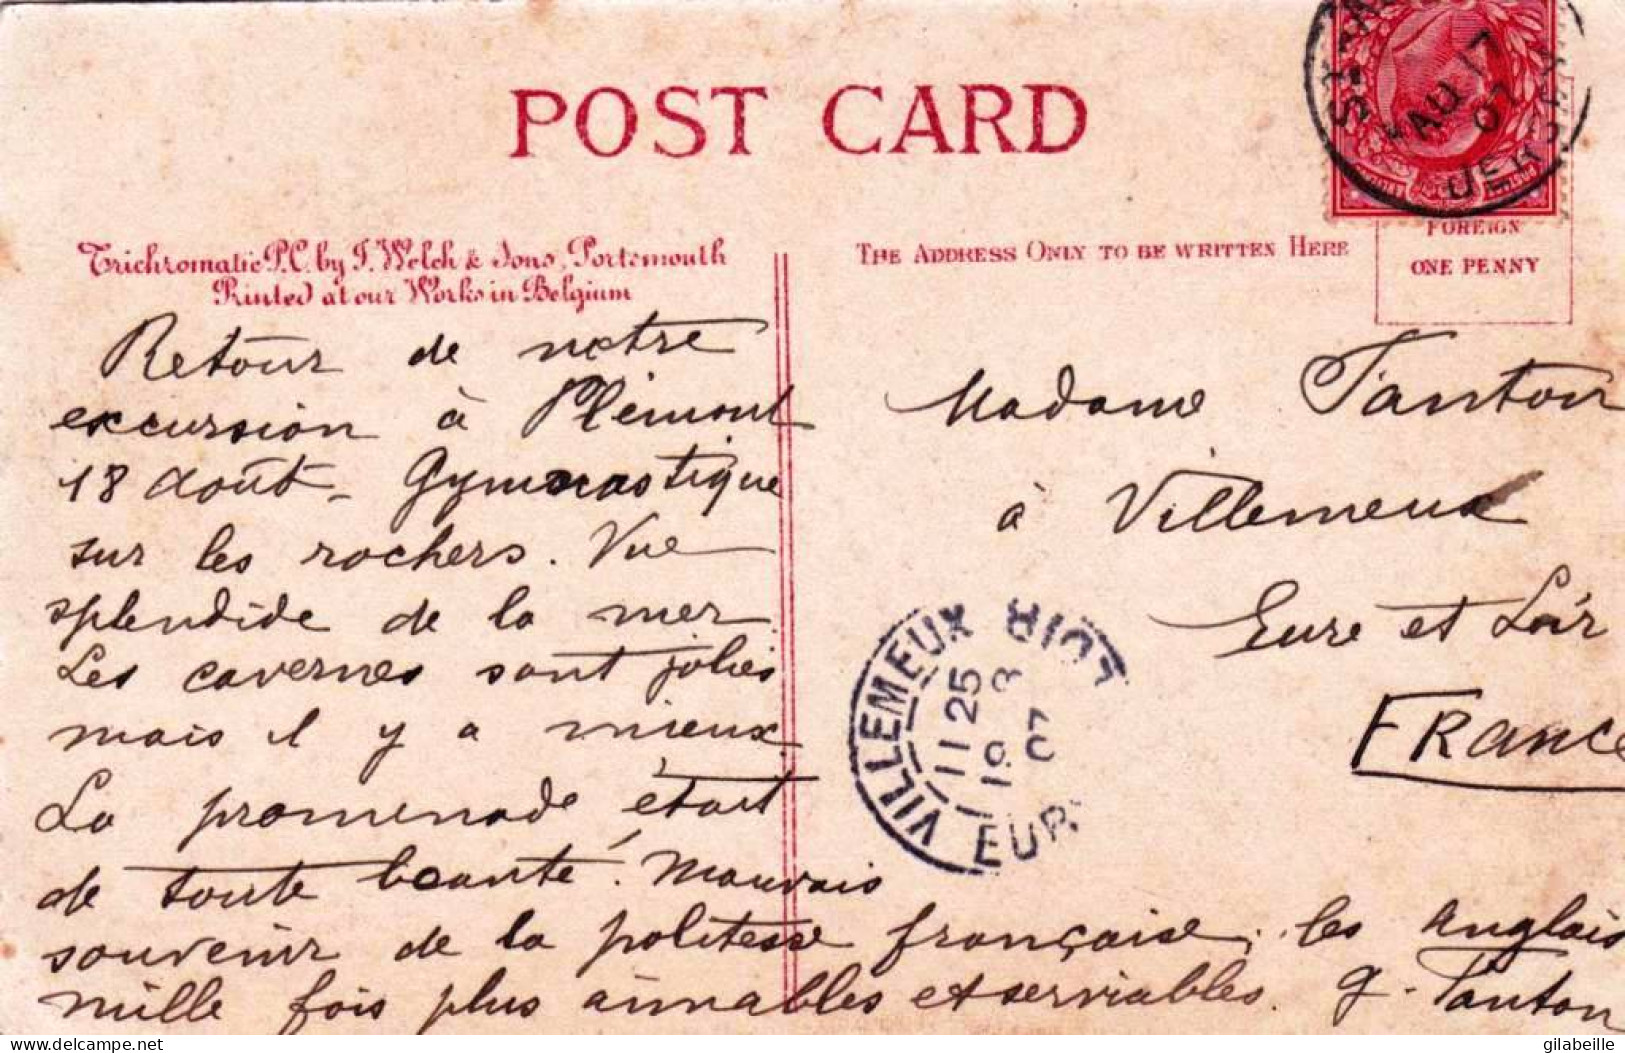 POST CARD
Trichromatic P.C. by J. Welch & Sons, Portsmouth
Printed at our Works in Belgium
THE ADDRESS ONLY TO BE WRITTEN HERE
FOREIGN
ONE PENNY
AU 17
07
JERSEY
Retour de notre
excursion à Plémont
18 août - Gymnastique
sur les rochers. Vue
splendide de la mer
Les cavernes sont jolies
mais il y a mieux
La promenade était
de toute beauté. Mauvais
souvenir de la politesse française, les anglais
mille fois plus aimables et serviables. G. Tanton
Madame Tanton
à Villemeux
Eure et Loir
FRANCE
VILLEMEUX
11 25
19 8
07
EUR
LOIR
www.delcampe.net
gilabeille